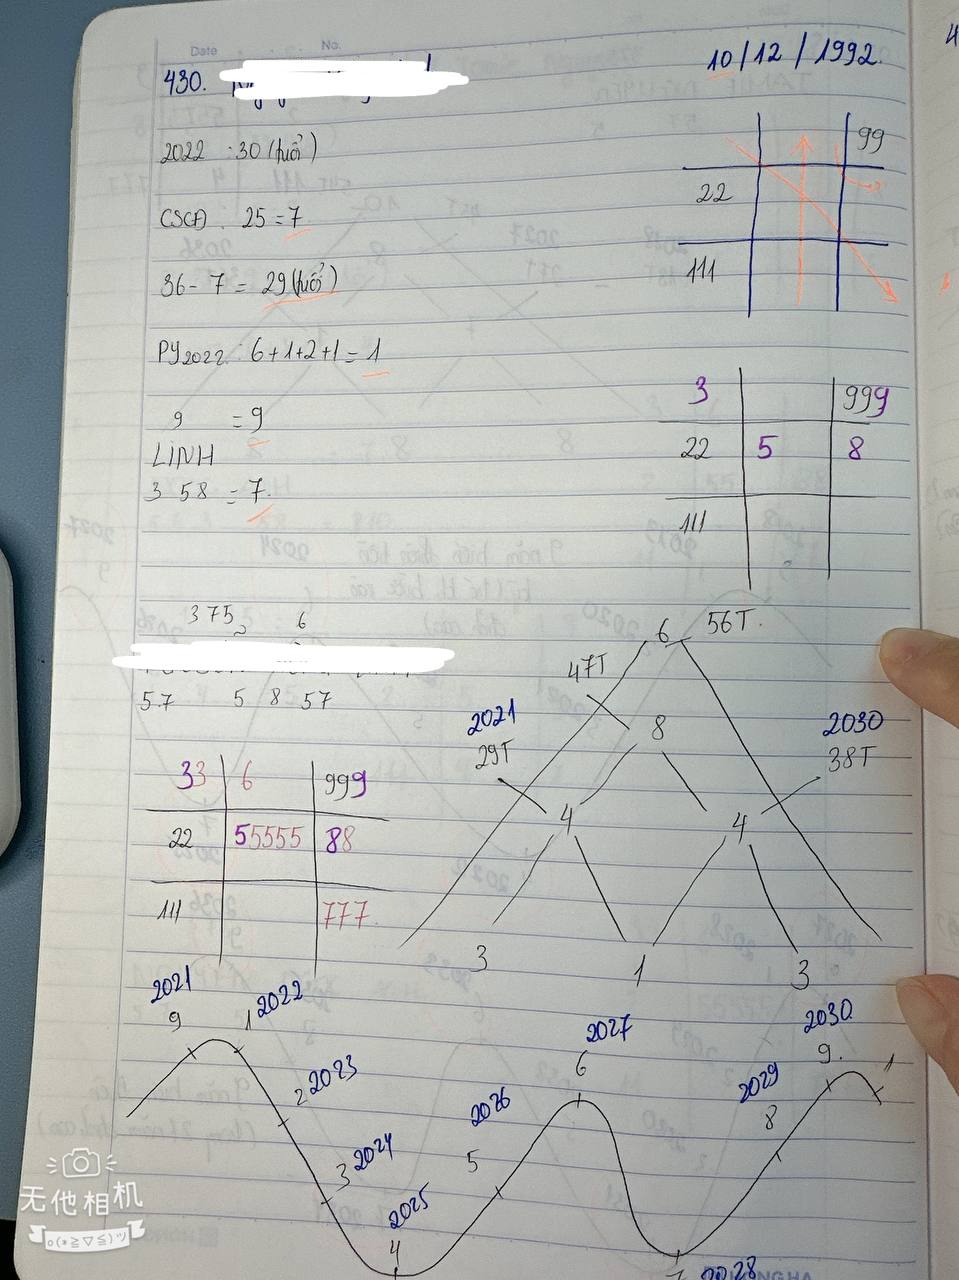 Date No.
430. 10/12/1992.
2022 : 30 (tuổi)
CSCĐ. 25 = 7
36 - 7 = 29 (tuổi)
PY2022: 6+1+2+1 = 1
9 = 9
LINH
3 5 8 = 7.
99
22
111
3 999
22 5 8
111
375 6
57 5 8 57
33 6 999
22 55555 88
111 777
6 56T.
47T
8
2021 2030
29T 38T
4 4
3 1 3
2021 2022 2023 2024 2025 2026 2027 2028 2029 2030
9 1 2 3 4 5 6 7 8 9. 1
无他相机